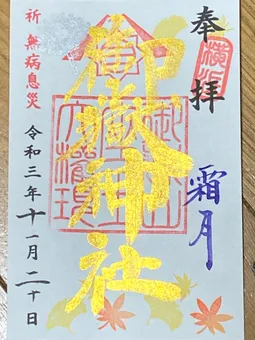 奉拝
横浜
霜月
御嶽神社
祈 無病息災
令和三年十一月二十日